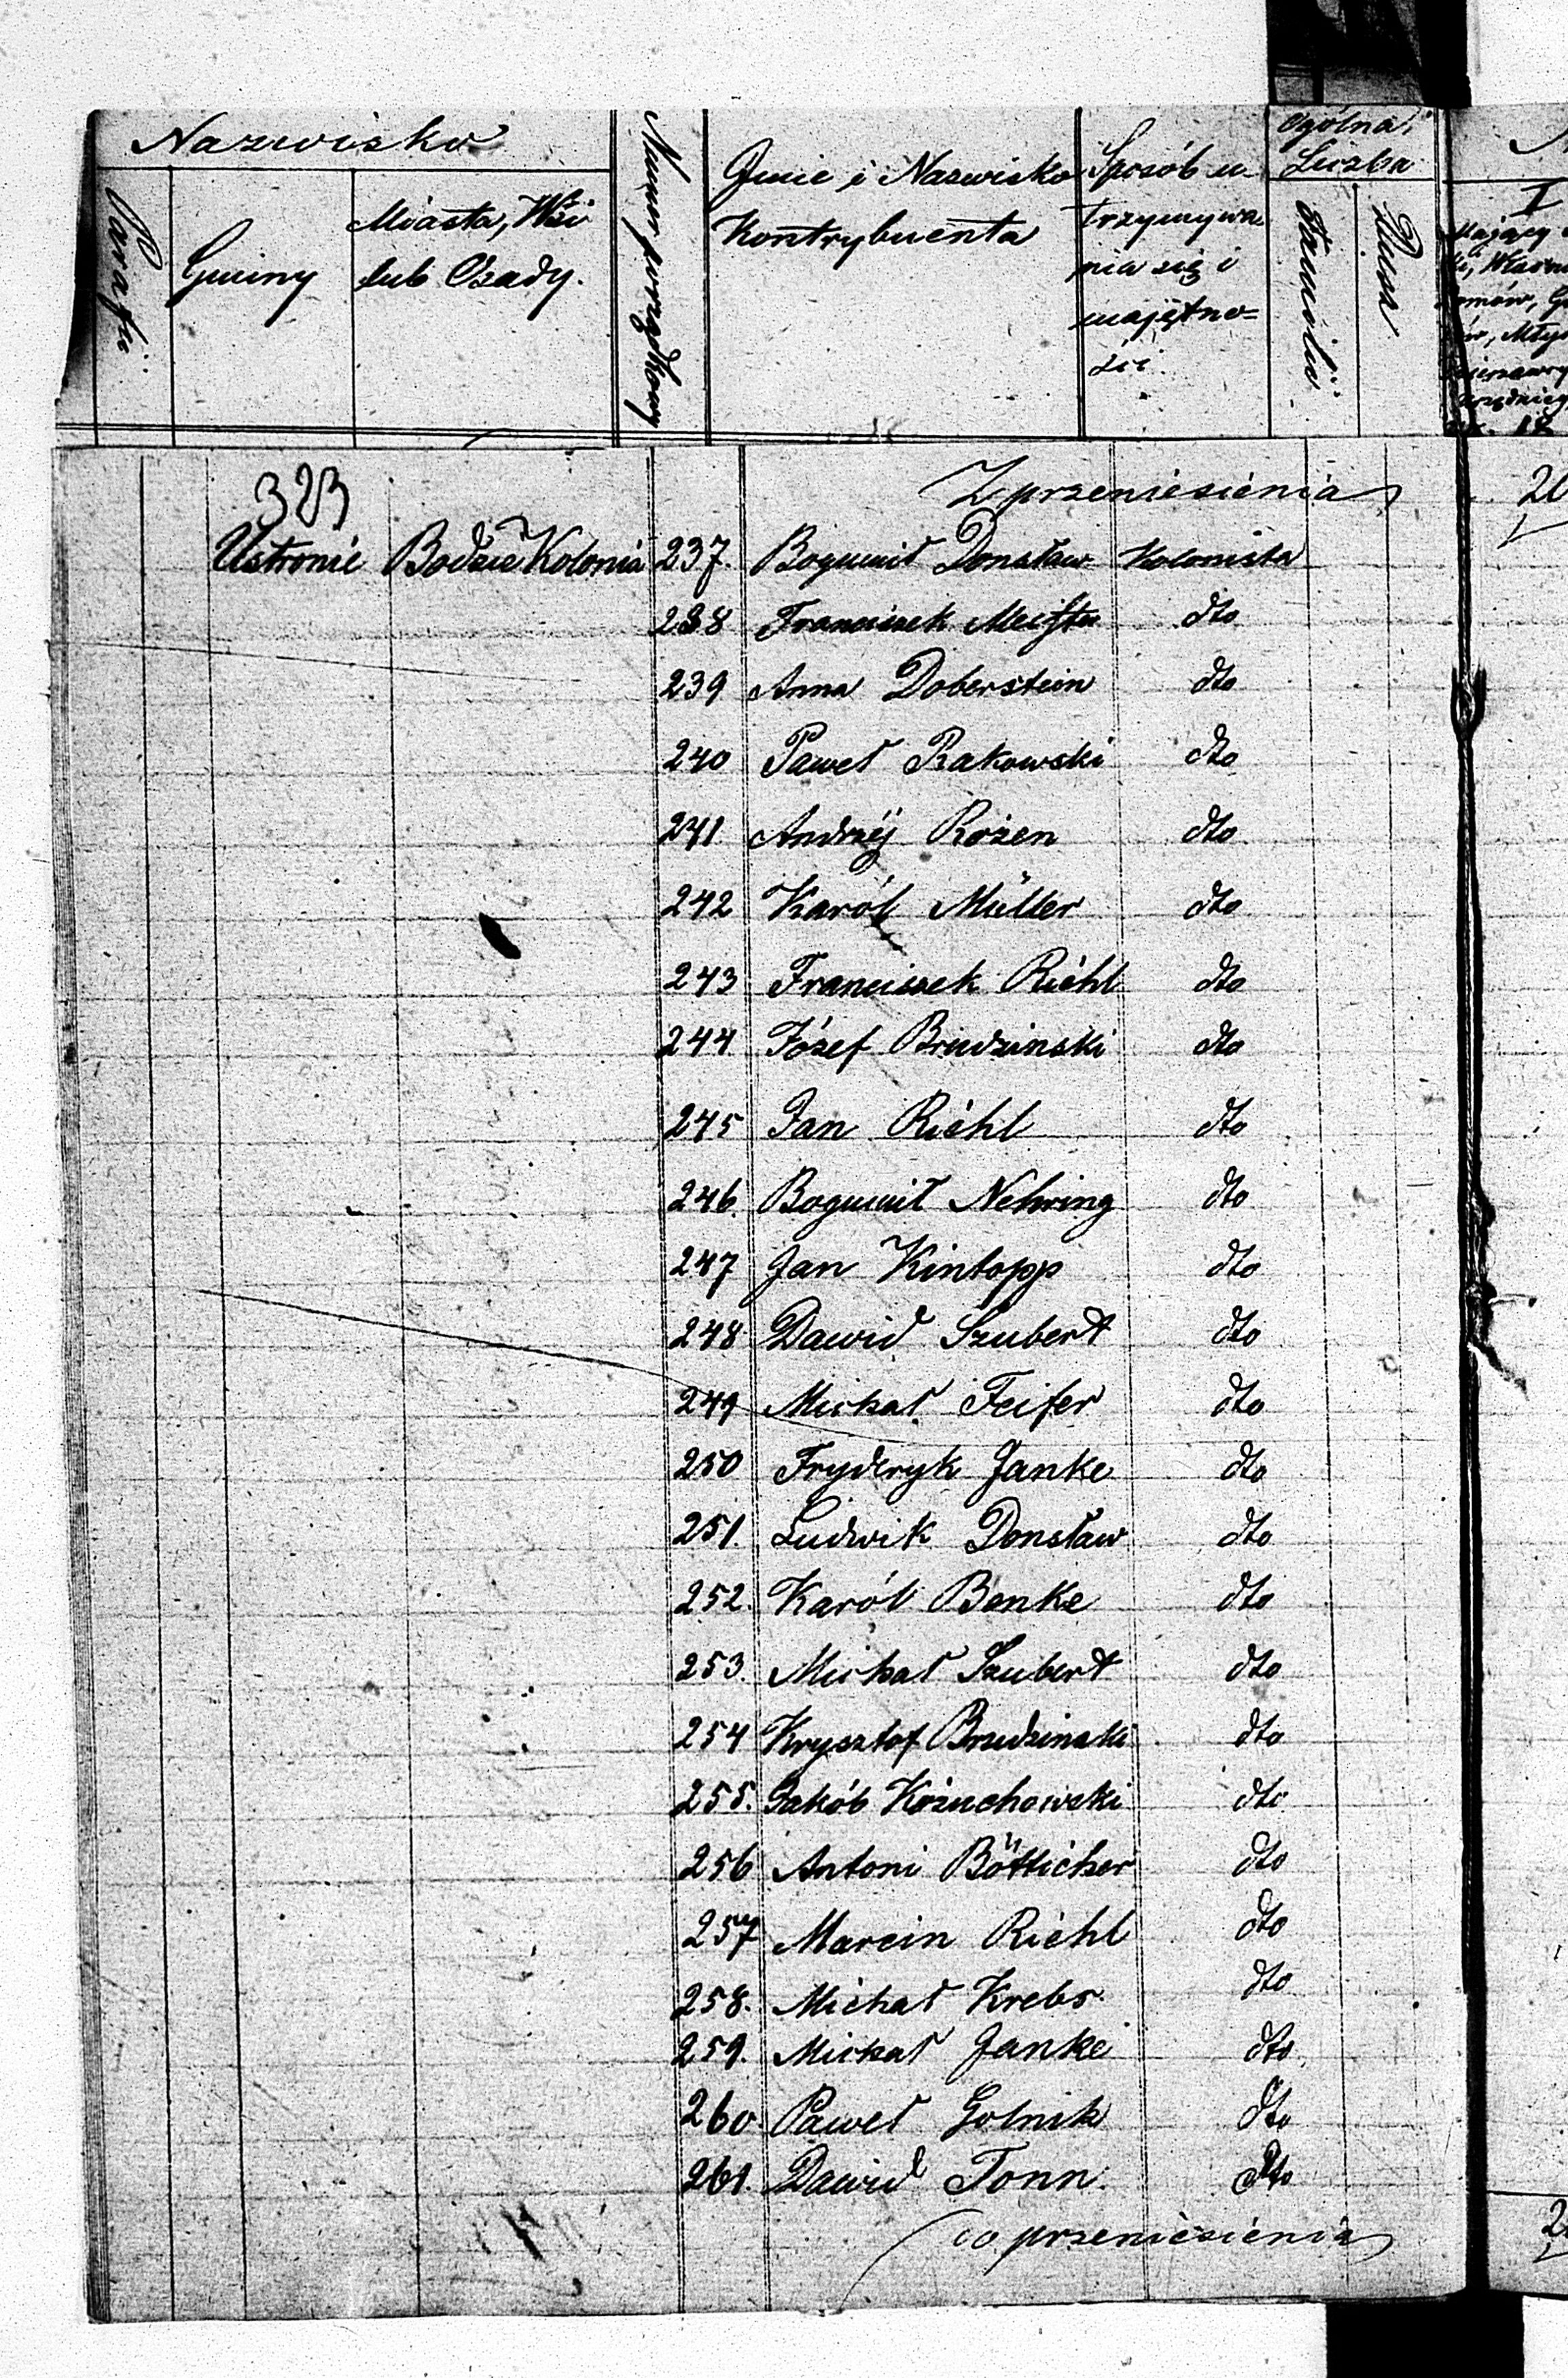 Nazwisko
Parafii
Gminy
Miasta, Wsi
lub Osady.
Numer porządkowy
Imie i Nazwisko
Kontrybuenta
Sposób u-
trzymywa
nia się i
majętno=
ści.
Ogólna
Liczba
Familii
Dusz
I
323
Z przeniesienia
20
Ustronie Bodzia Kolonia 237. Bogumił Donstaw Kolonista
238 Franciszek Meister dto
239 Anna Doberstein dto
240 Paweł Rakowski dto
241. Andrzéj Rożen dto
242 Karól Müller dto
243 Franciszek Riehl dto
244. Józef Brudzinski dto
245 Jan Riehl dto
246. Bogumił Nehring dto
247 Jan Kintopp dto
248 Dawid Szubert dto
249 Michał Feifer dto
250 Fryderyk Janke dto
251. Ludwik Donstaw dto
252. Karól Benke dto
253. Michał Szubert dto
254 Krysztof Brudzinski dto
255. Jakób Kożuchowski dto
256 Antoni Bötticher dto
257 Marcin Riehl dto
258. Michał Krebs dto
259. Michał Janke dto
260. Paweł Golnik dto
261. Dawid Tonn. dto
do przeniesienia